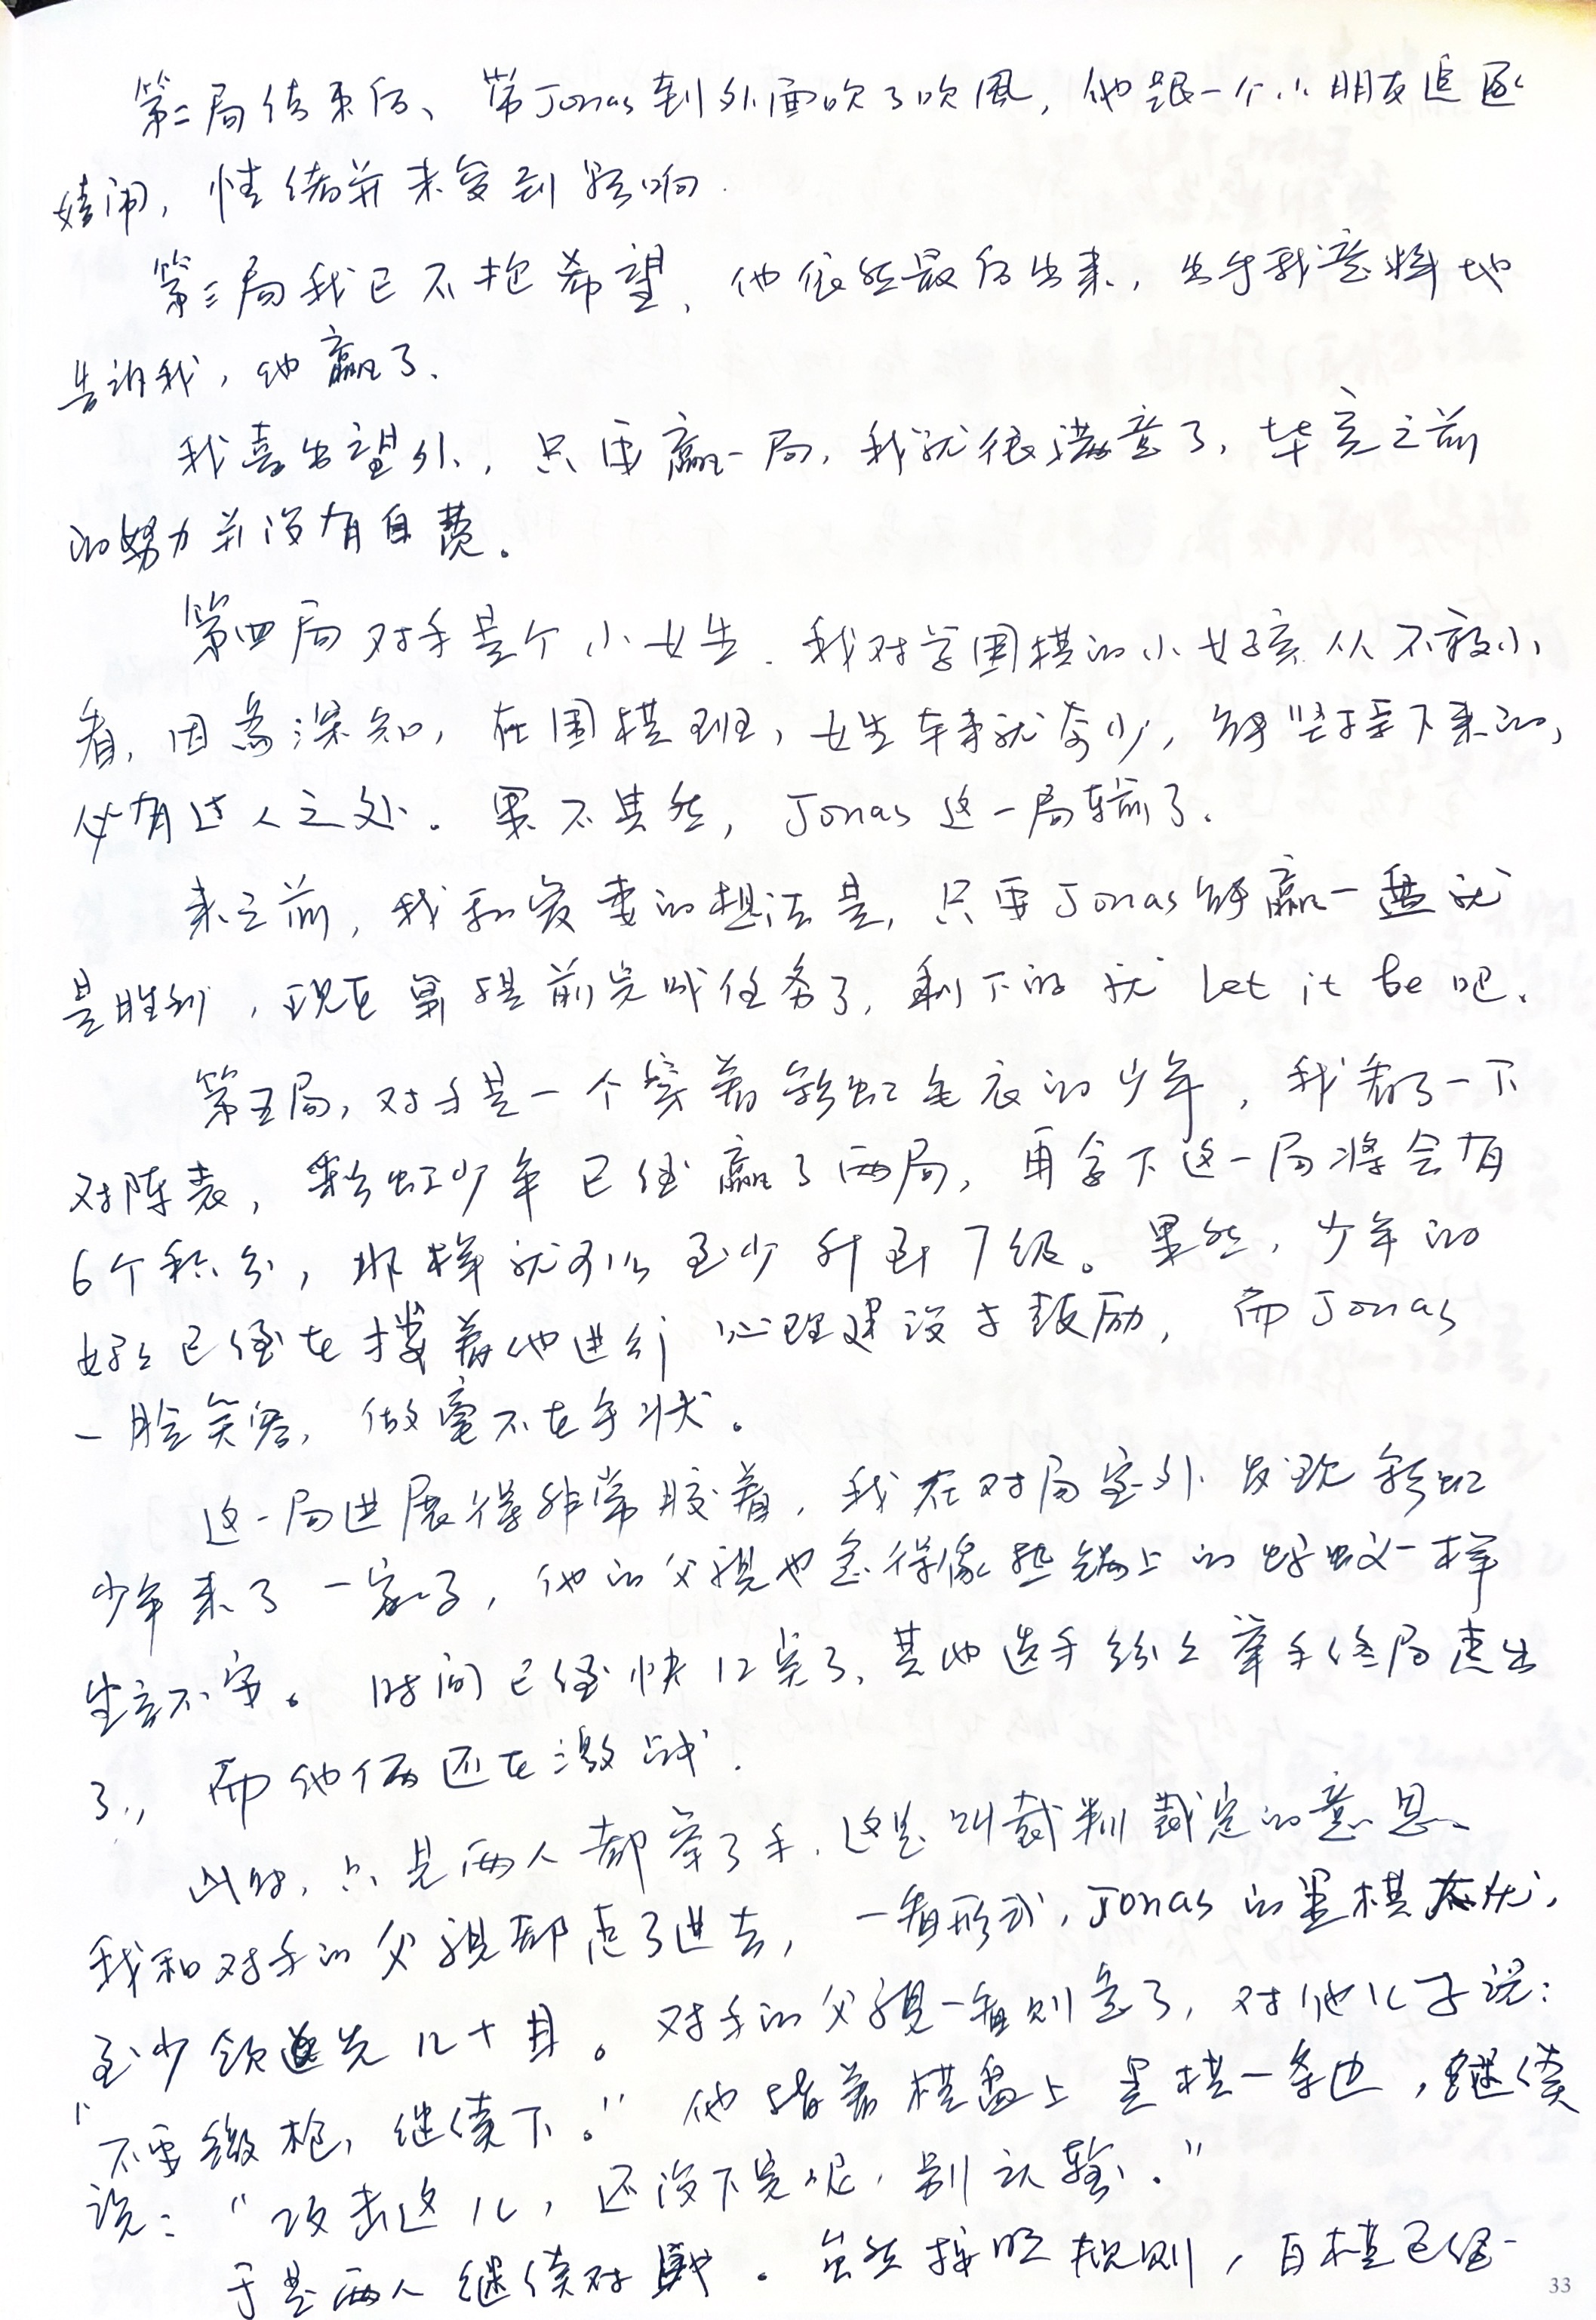 第二局结束后、带Jonas到外面吹了吹风，他跟一个小朋友追逐
嬉闹，情绪并未受到影响.
第三局我已不抱希望，他依然最后出来，出乎我意料地
告诉我，他赢了.
我喜出望外，只要赢一局，我就很满意了，毕竟之前
的努力并没有白费。
第四局对手是个小女生.我对学围棋的小女孩从不敢小
看，因为深知，在围棋班，女生本来就奇少，能坚持下来的，
必有过人之处。果不其然，Jonas这一局输了.
来之前，我和爱妻的想法是，只要Jonas能赢一盘就
是胜利，现在算提前完成任务了，剩下的就 let it be 吧.
第五局，对手是一个穿着彩虹毛衣的少年，我看了一下
对阵表，彩虹少年已经赢了两局，再拿下这一局将会有
6个积分，那样就可以至少升到7级。果然，少年的
妈妈已经在搂着他进行心理建设于鼓励，而Jonas
一脸笑容，做毫不在乎状。
这一局进展得非常胶着，我在对局室外发现彩虹
少年来了一家子，他的父亲也急得像热锅上的蚂蚁一样
坐立不安。时间已经快12点了，其他选手纷纷举手终局走出
了，而他俩还在激战.
此时，只见两人都举了手.这是叫裁判裁定的意思、
我和对手的父亲都走了进去，一看形式，Jonas的黑棋大优，
至少领先几十目。对手的父亲一看则急了，对他儿子说：
“不要缴枪，继续下。”他指着棋盘上黑棋一条边，继续
说：“攻击这儿，还没下完呢，别认输.”
于是两人继续对战。虽然按照规则，白棋已经一
33